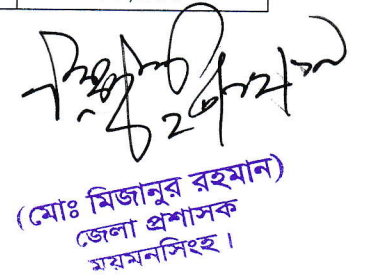 (মোঃ মিজানুর রহমান)
জেলা প্রশাসক
ময়মনসিংহ।